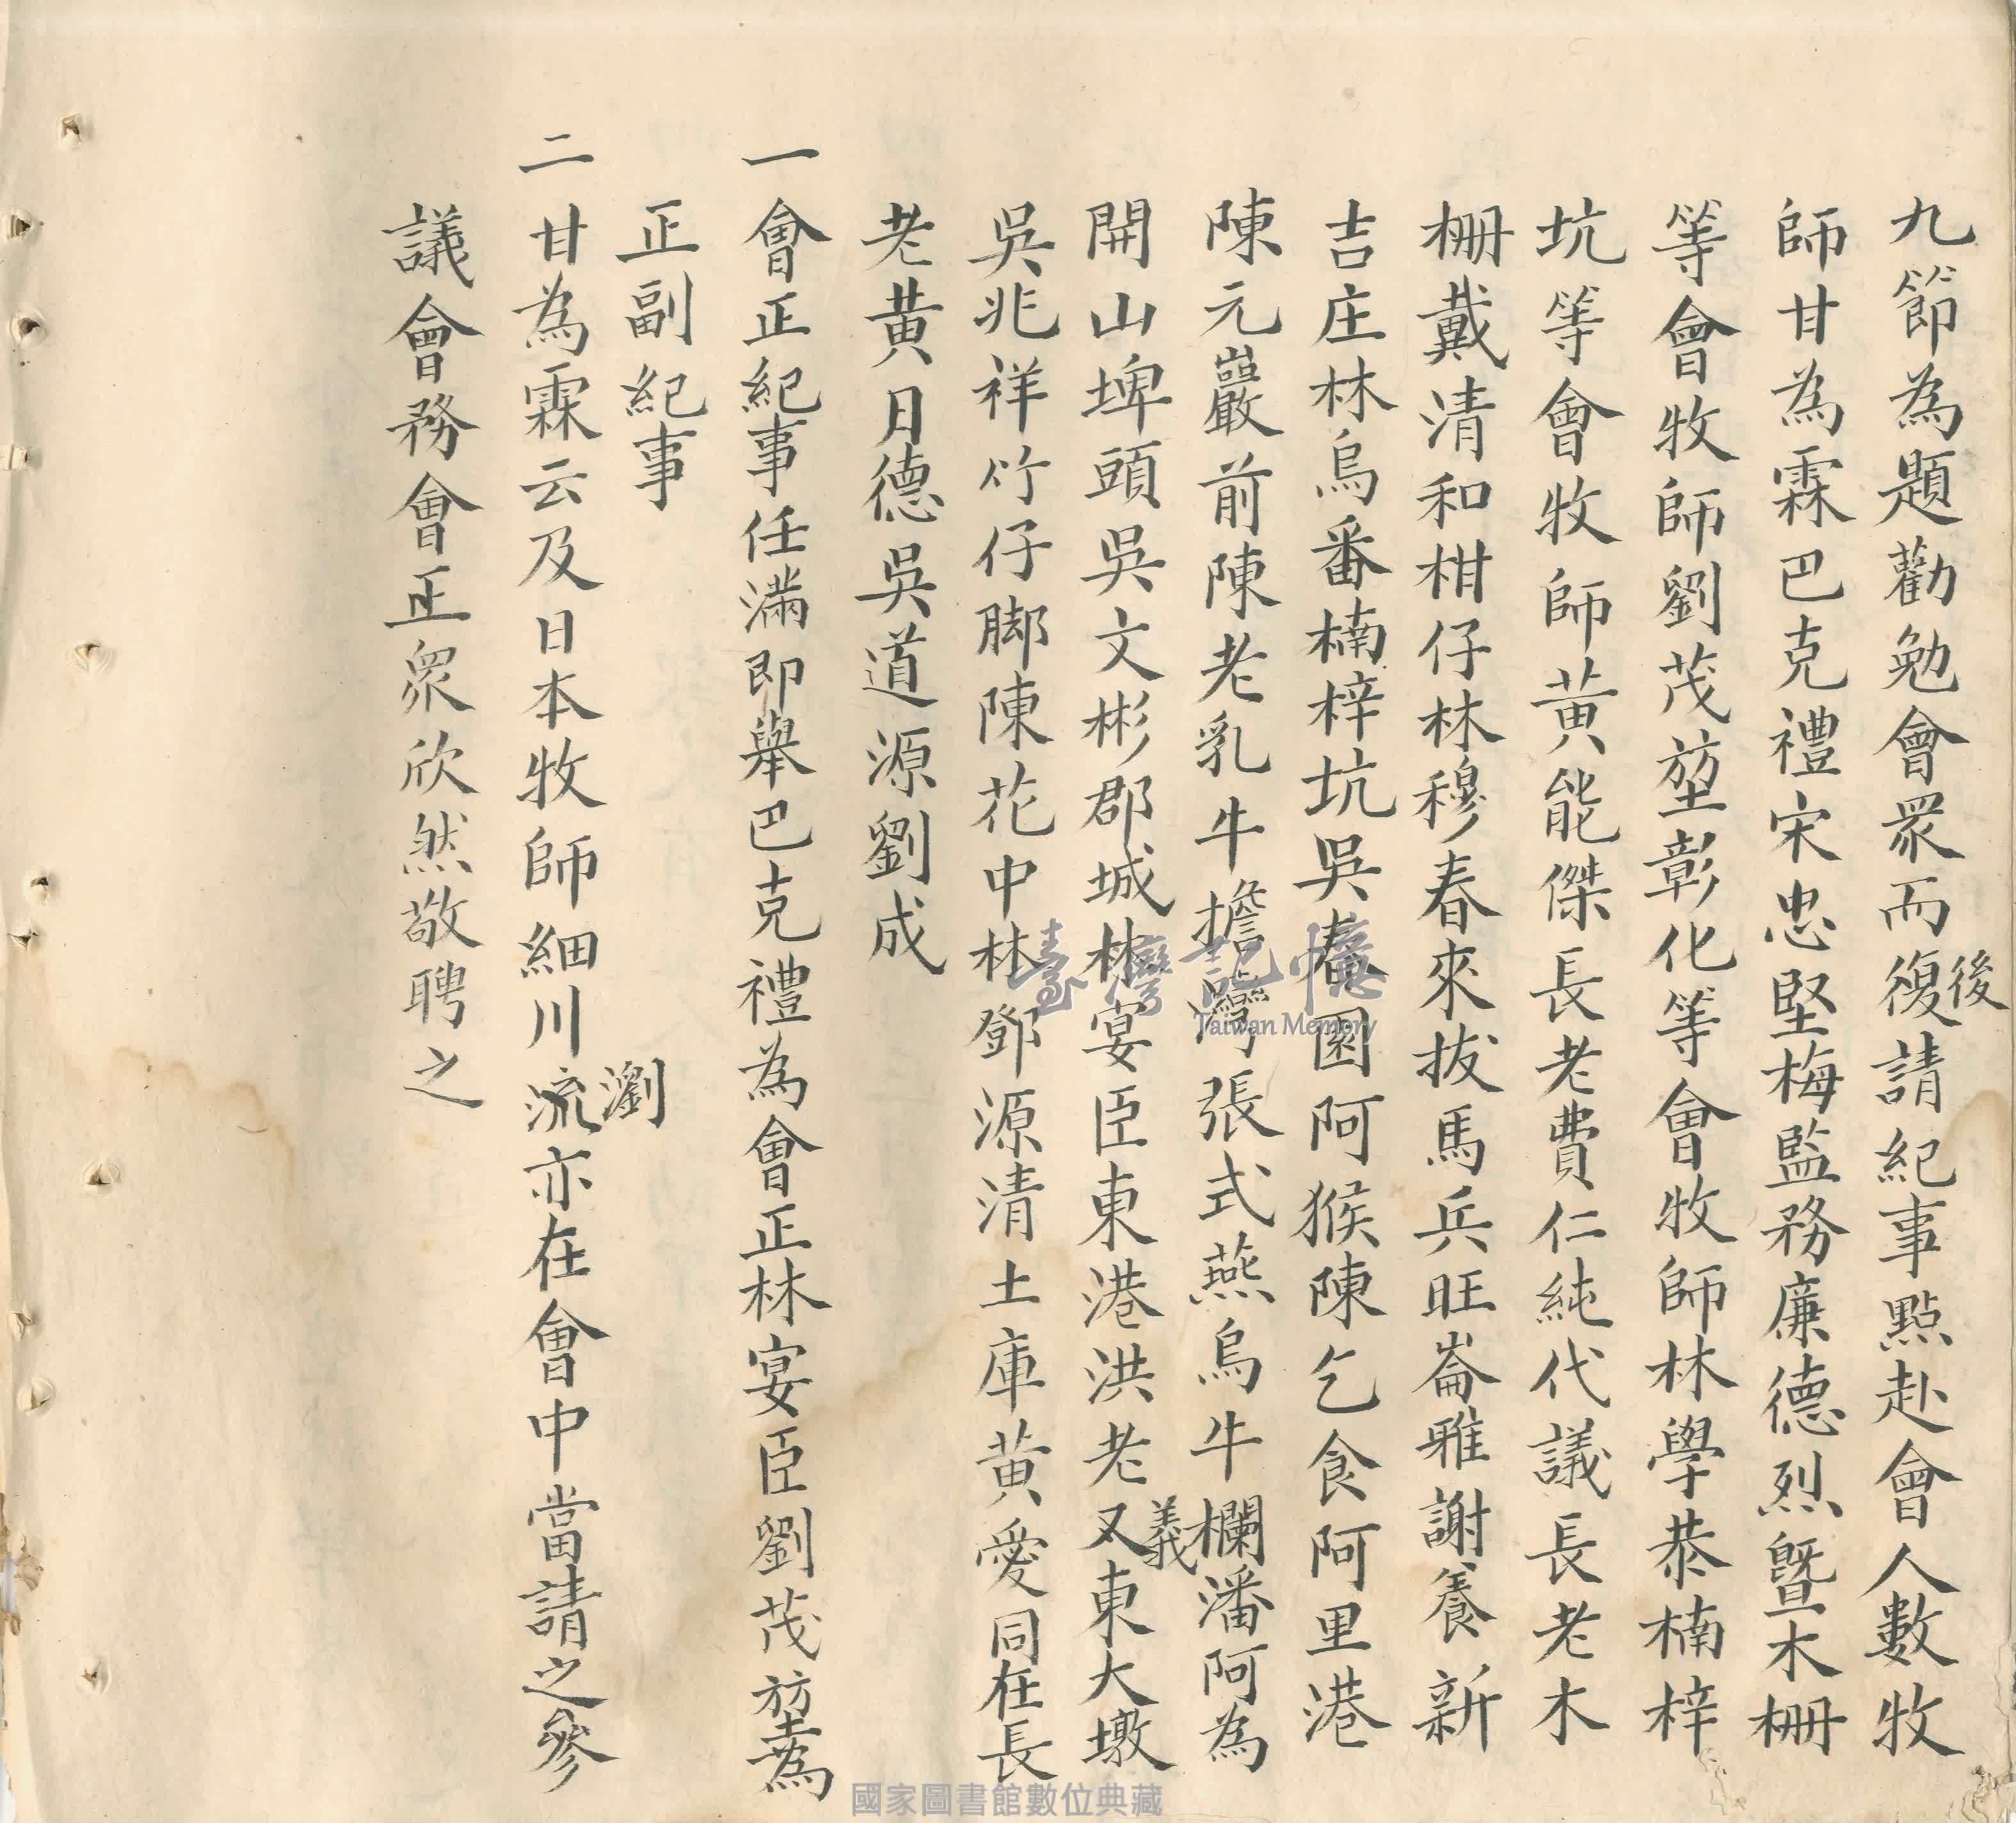 九節為題勸勉會眾而復後請紀事點赴會人數牧
師甘為霖巴克禮宋忠堅梅監務廉德烈暨木柵
等會牧師劉茂堃彰化等會牧師林學恭楠梓
坑等會牧師黃能傑長老費仁純代議長老木
柵戴清和柑仔林穆春來拔馬兵旺崙雅謝養新
吉庄林烏番楠梓坑吳着園阿猴陳乞食阿里港
陳元巖前陳老乳牛擔灣張式燕烏牛欄潘阿為
開山埤頭吳文彬郡城林宴臣東港洪老又義東大墩
吳兆祥竹仔腳陳花中林鄧源清土庫黃愛同在長
老黃日德吳道源劉成
一會正紀事任滿即舉巴克禮為會正林宴臣劉茂堃為
正副紀事
二甘為霖云及日本牧師細川流瀏亦在會中當請之參
議會務會正眾欣然敬聘之
臺灣記憶
Taiwan Memory
國家圖書館數位典藏